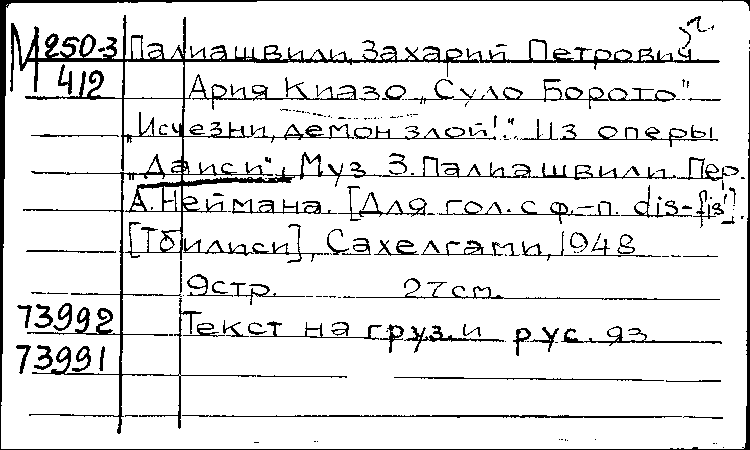 М 250-3 Палиашвили, Захарий Петрович
412 Ария Киазо „Суло Борото"
„Исчезни, демон злой!". Из оперы
„Даиси". Муз З. Палиашвили Пер.
А. Неймана. [Для гол. с ф.-п. dis-fis'].
[Тбилиси], Сахелгами, 1948
9стр. 27см.
73992 Текст на груз. и рус. яз.
73991